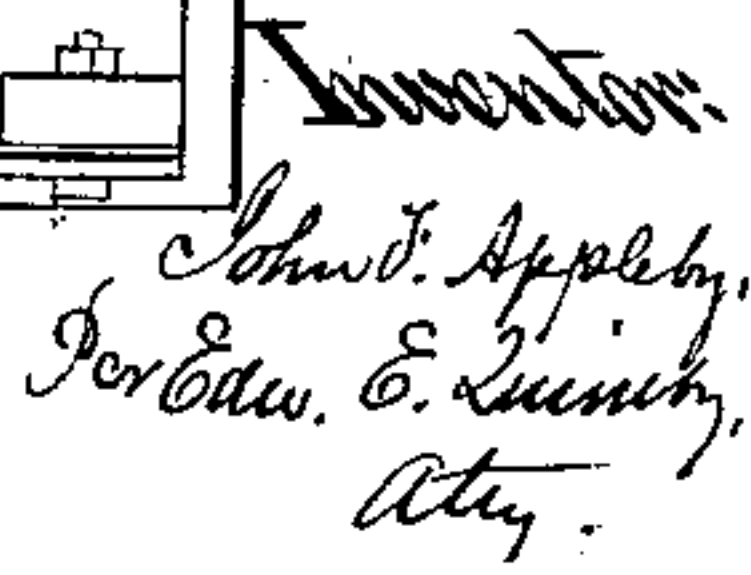 Inventor:
John F. Appleby,
Per Edw. E. Quimby,
Atty.